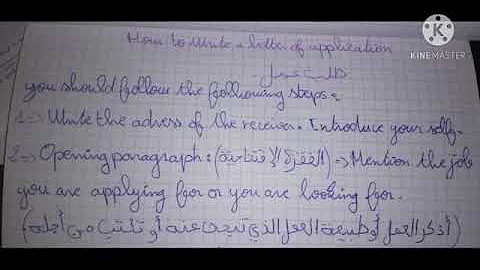 How to write a letter of application
KINEMASTER
طلب عمل
you should follow the following steps:
1 -> Write the adress of the receiver. Introduce your self.
2 -> Opening paragraph: (الفقرة الإفتتاحية) -> Mention the job
you are applying for or you are looking for.
(أذكر العمل أو طبيعة العمل الذي تبحث عنه أو تكتب من أجله)